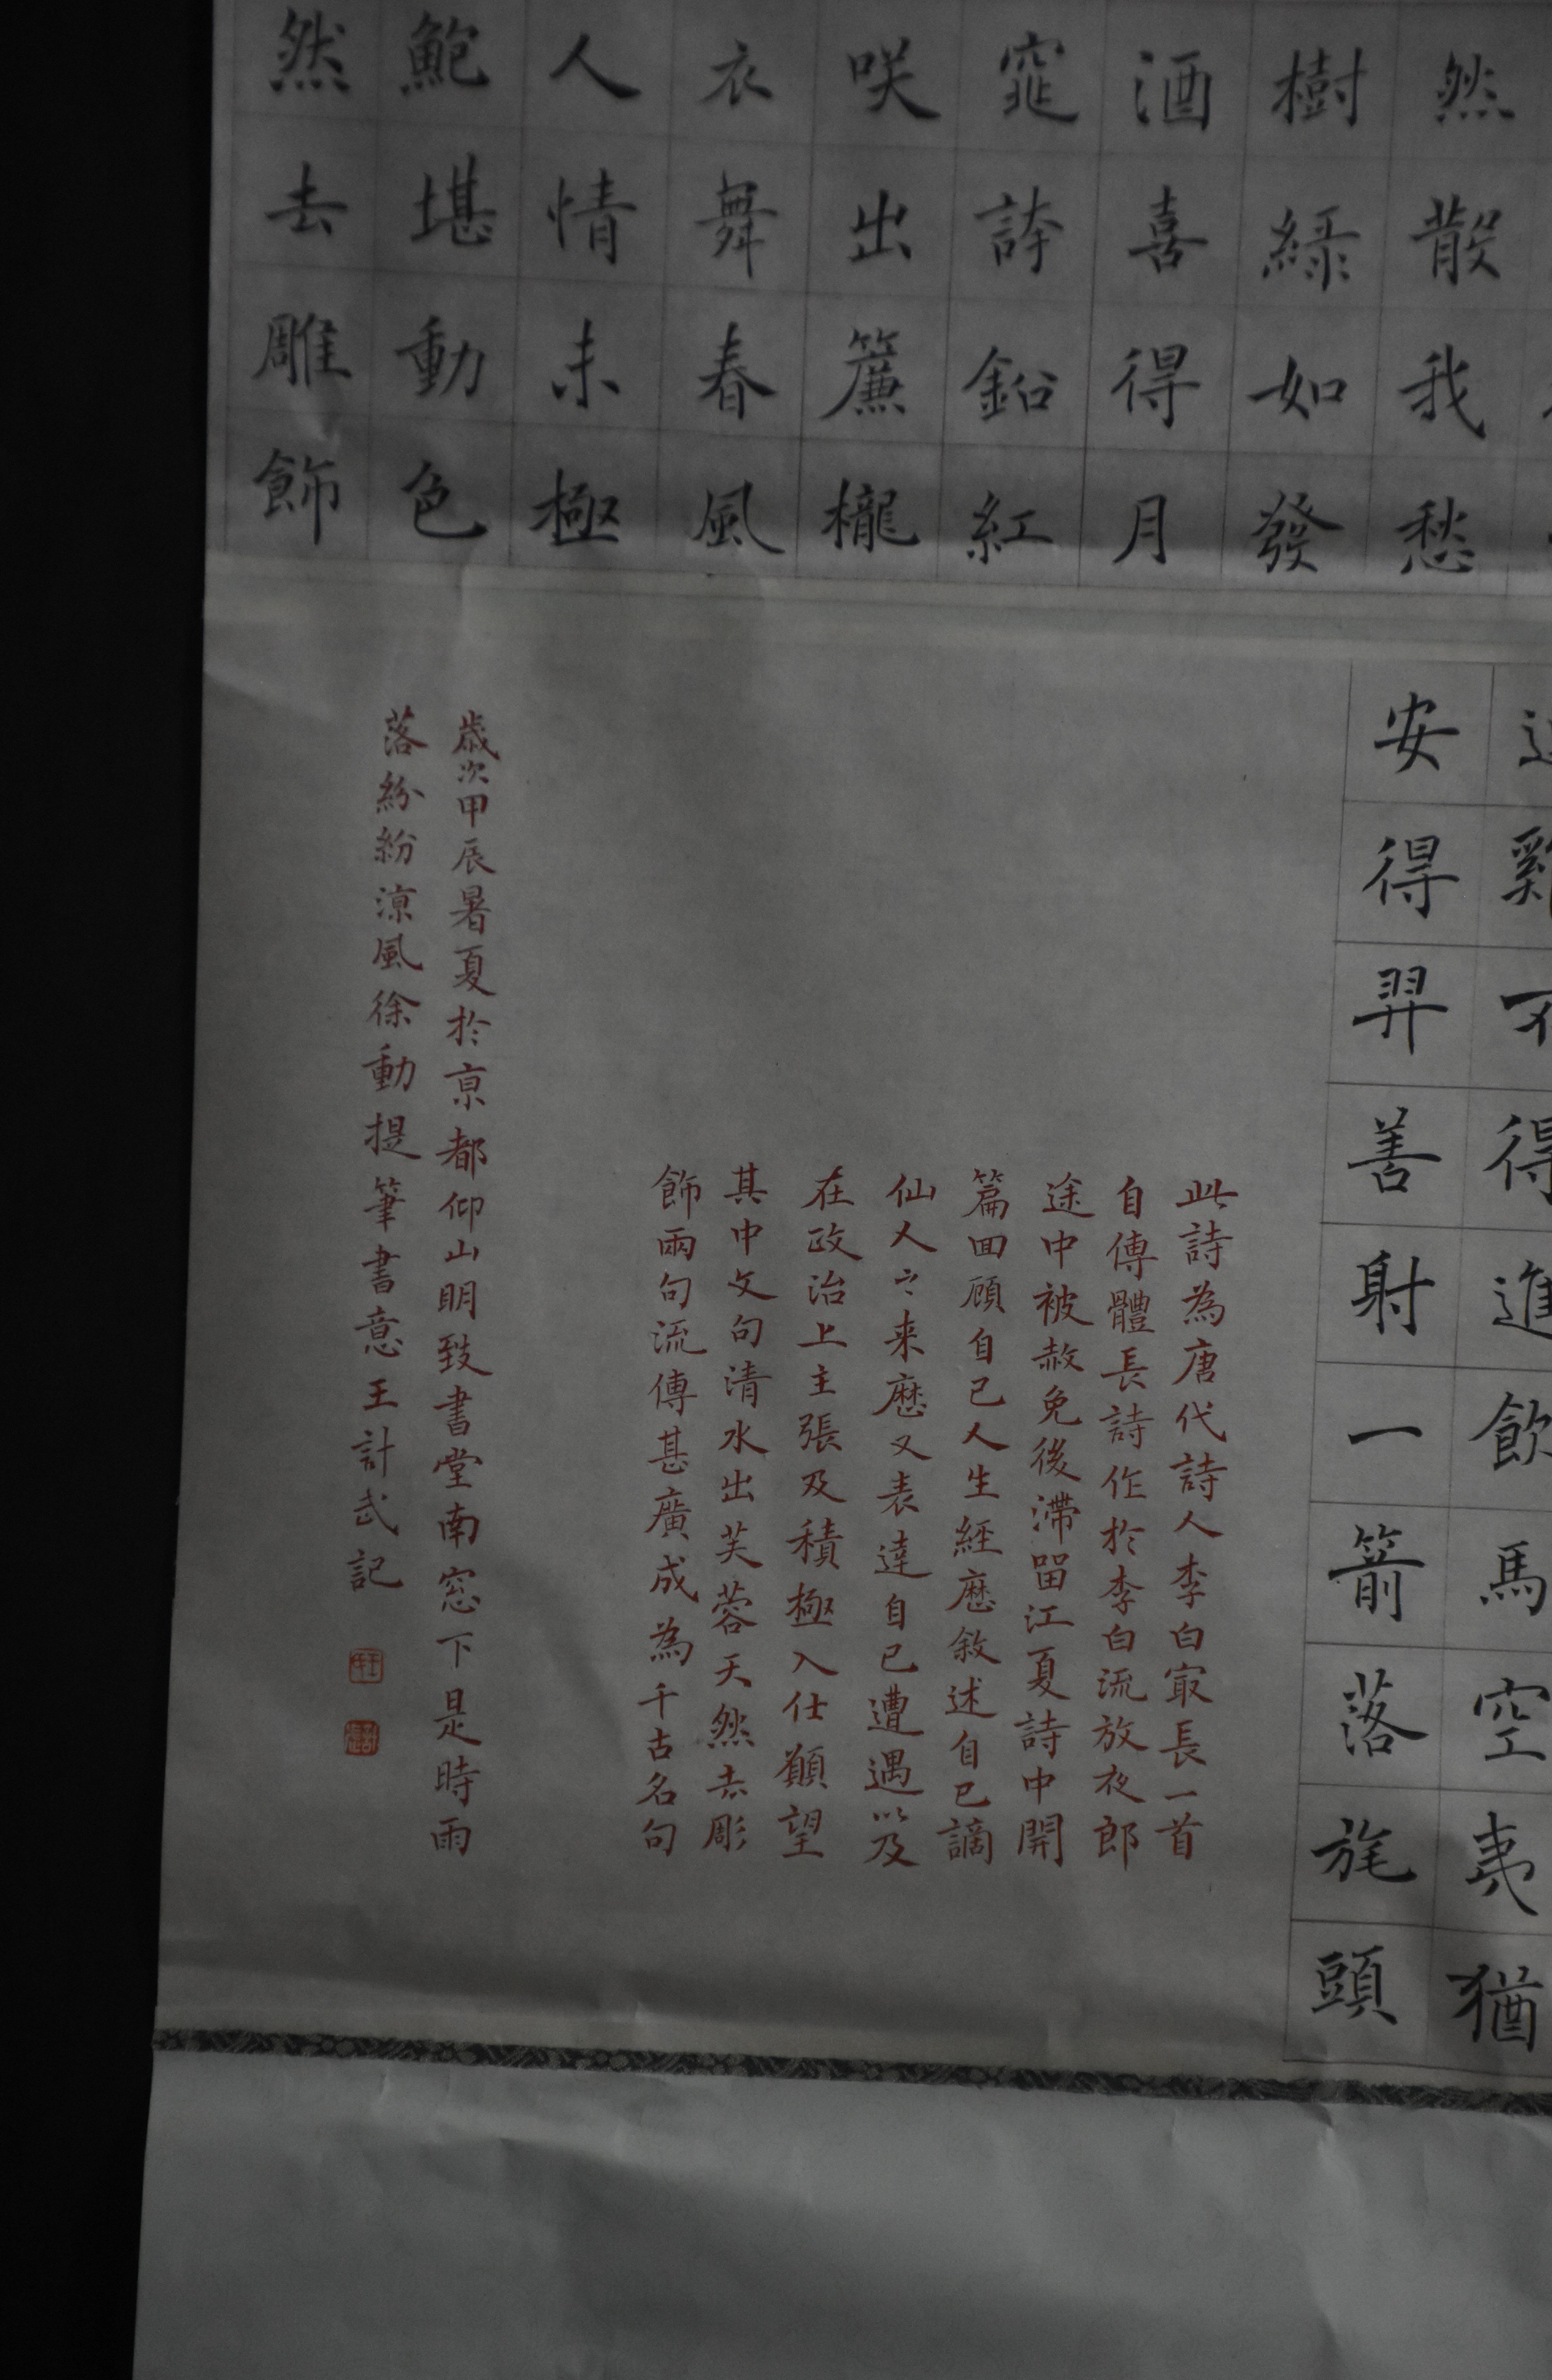 然散我愁
樹緑如發
酒喜得月
窕誇鉛紅
咲出簾櫳
衣舞春風
人情未極
鮑堪動色
然去雕飾
雞不得進飲馬空夷猶
安得羿善射一箭落旄頭
此詩為唐代詩人李白㝡長一首
自傳體長詩作於李白流放夜郎
途中被赦免後滯留江夏詩中開
篇回顧自己人生經歷敘述自己謫
仙人之来歷又表達自己遭遇以及
在政治上主張及積極入仕願望
其中文句清水出芙蓉天然去彫
飾兩句流傳甚廣成為千古名句
歲次甲辰暑夏於京都仰山明致書堂南窓下是時雨
落紛紛涼風徐動提筆書意王計武記